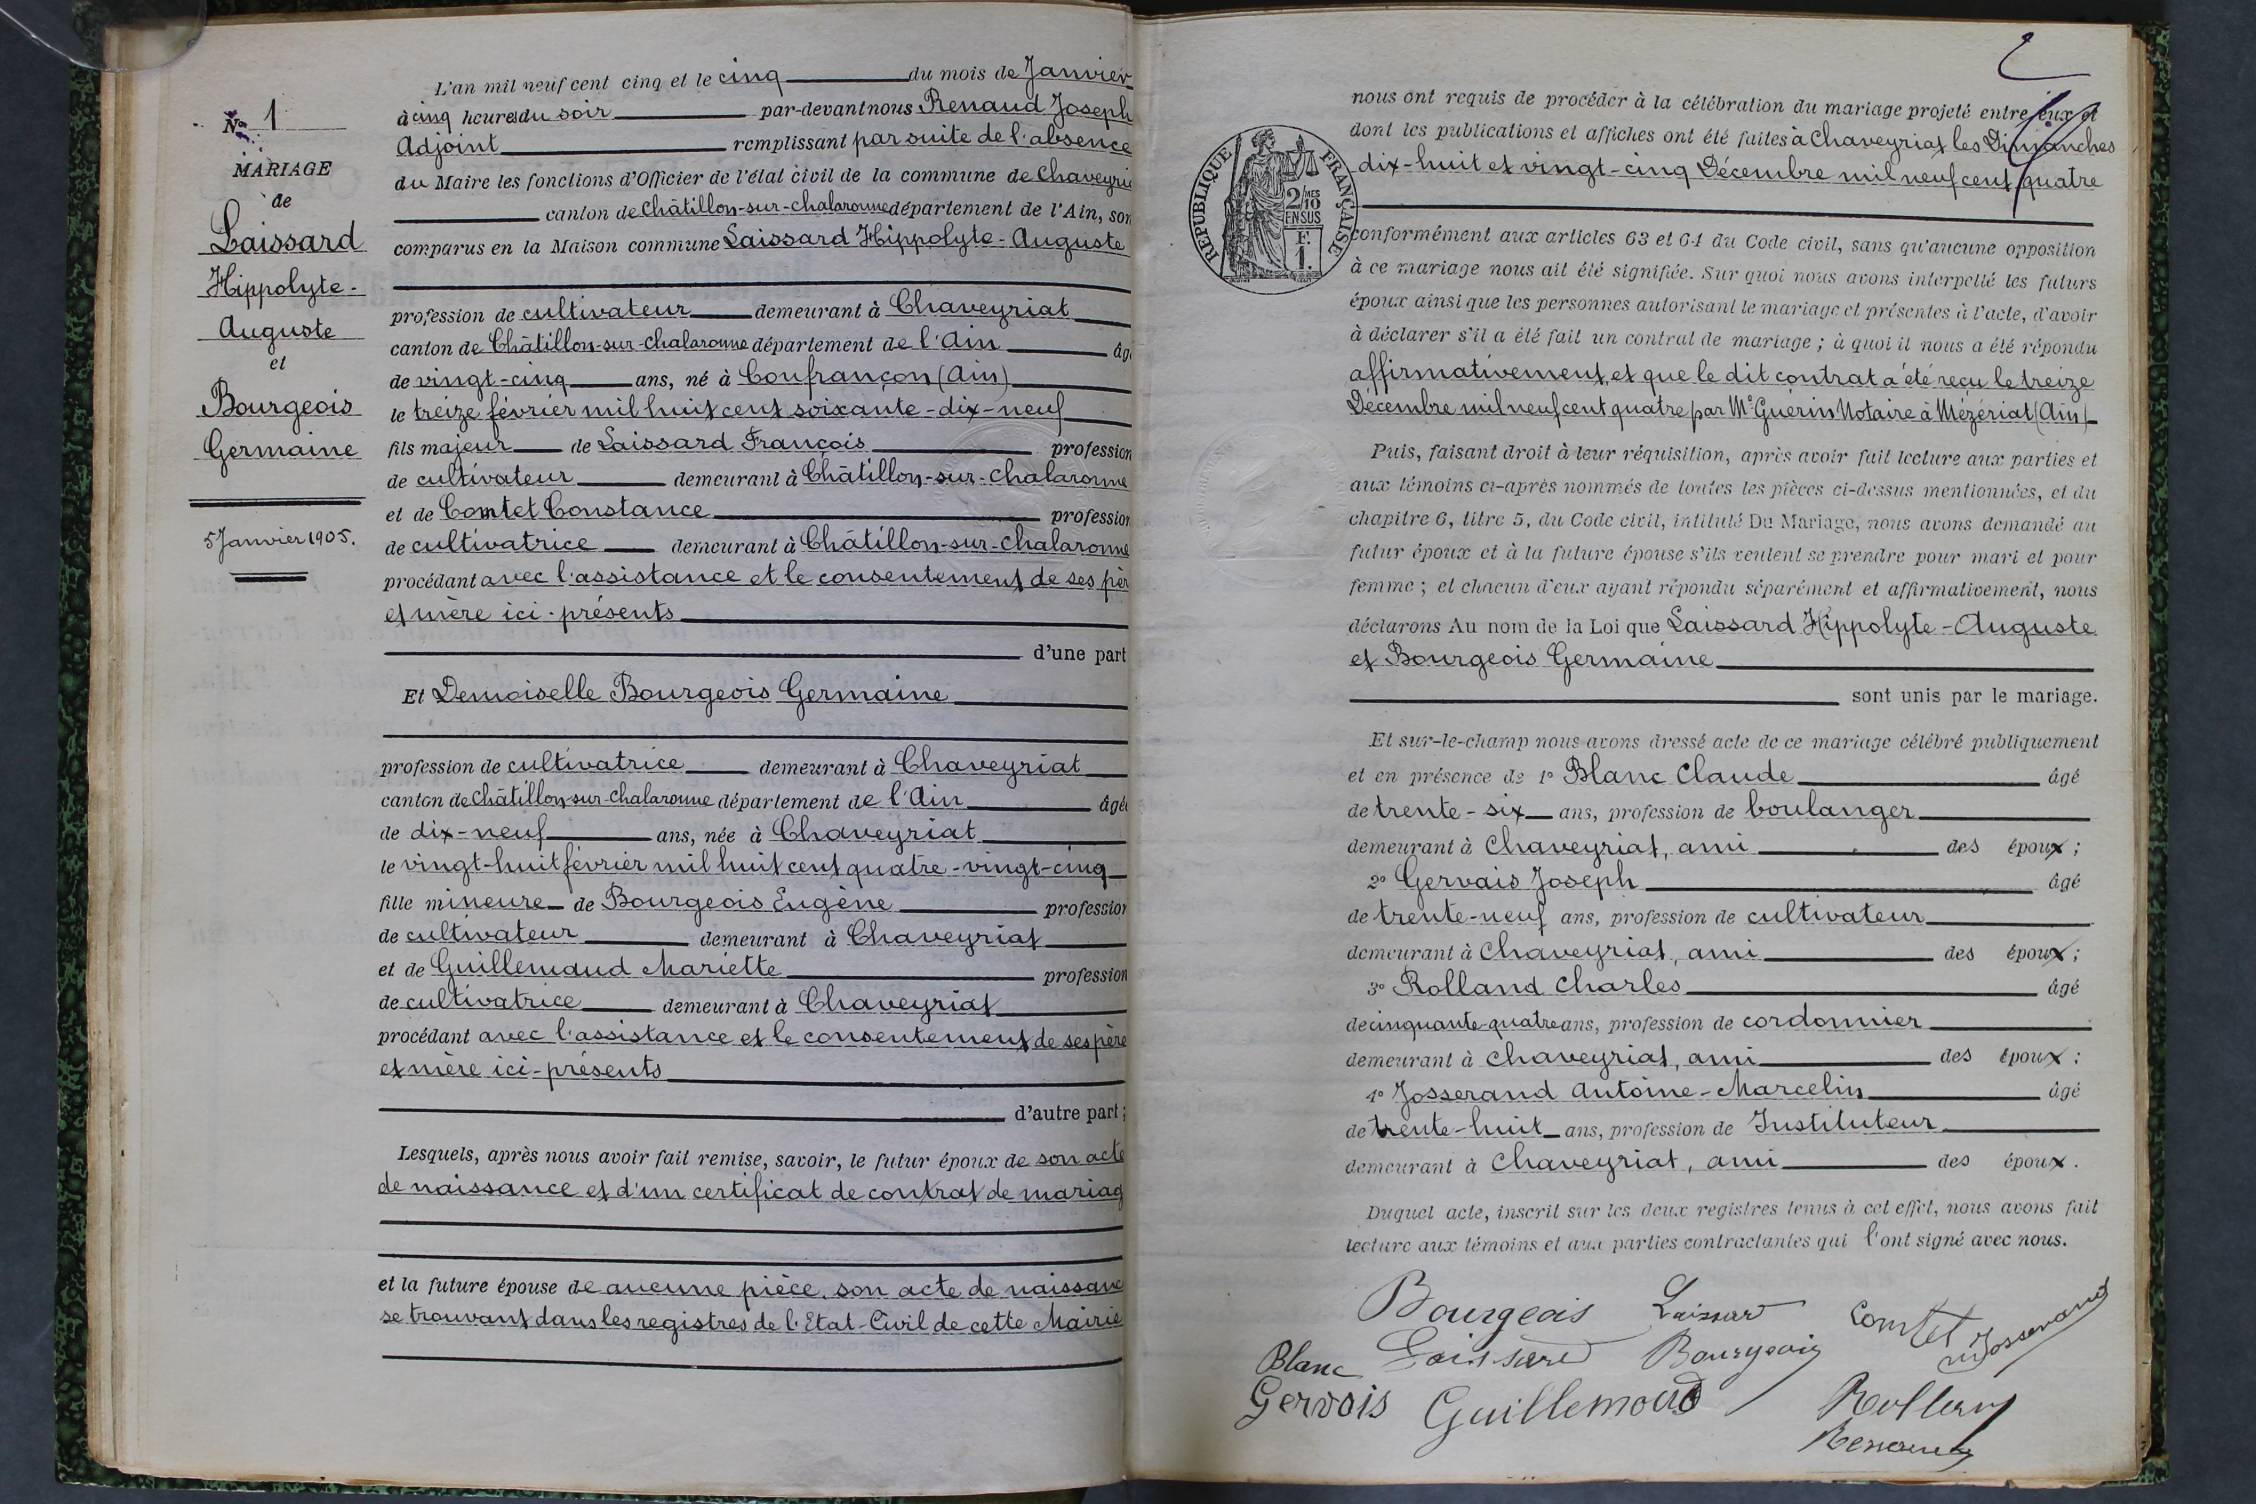 N° 1
MARIAGE
de
Laissard
Hippolyte-
Auguste
et
Bourgeois
Germaine
5 Janvier 1905.
L'an mil neuf cent cinq et le cinq du mois de Janvier
à cinq heures du soir par-devant nous Renaud Joseph
Adjoint remplissant par suite de l'absence
du Maire les fonctions d'Officier de l'état civil de la commune de Chaveyria
canton de Châtillon-sur-Chalaronne département de l'Ain, son
comparus en la Maison commune Laissard Hippolyte-Auguste
profession de cultivateur demeurant à Chaveyriat
canton de Châtillon-sur-Chalaronne département de l'Ain âg
de vingt-cinq ans, né à Confrançon (Ain)
le treize février mil huit cent soixante-dix-neuf
fils majeur de Laissard François profession
de cultivateur demeurant à Châtillon-sur-Chalaronne
et de Comtet Constance profession
de cultivatrice demeurant à Châtillon-sur-Chalaronne
procédant avec l'assistance et le consentement de ses pèr
et mère ici-présents
d'une part
Et Demoiselle Bourgeois Germaine
profession de cultivatrice demeurant à Chaveyriat
canton de Châtillon-sur-Chalaronne département de l'Ain âgé
de dix-neuf ans, née à Chaveyriat
le vingt-huit février mil huit cent quatre-vingt-cinq
fille mineure de Bourgeois Eugène profession
de cultivateur demeurant à Chaveyriat
et de Guillemaud Mariette profession
de cultivatrice demeurant à Chaveyriat
procédant avec l'assistance et le consentement de ses père
et mère ici-présents
d'autre part ;
Lesquels, après nous avoir fait remise, savoir, le futur époux de son acte
de naissance et d'un certificat de contrat de mariag
et la future épouse de aucune pièce, son acte de naissanc
se trouvant dans les registres de l'Etat-Civil de cette Mairie
2
RÉPUBLIQUE FRANÇAISE
2/10 MES
EN SUS
F.
1.
nous ont requis de procéder à la célébration du mariage projeté entre eux et
dont les publications et affiches ont été faites à Chaveyriat les Dimanches
dix-huit et vingt-cinq Décembre mil neuf cent quatre
conformément aux articles 63 et 64 du Code civil, sans qu'aucune opposition
à ce mariage nous ait été signifiée. Sur quoi nous avons interpellé les futurs
époux ainsi que les personnes autorisant le mariage et présentes à l'acte, d'avoir
à déclarer s'il a été fait un contrat de mariage ; à quoi il nous a été répondu
affirmativement, et que le dit contrat a été reçu le treize
Décembre mil neuf cent quatre par Me Guérin Notaire à Mézériat (Ain)
Puis, faisant droit à leur réquisition, après avoir fait lecture aux parties et
aux témoins ci-après nommés de toutes les pièces ci-dessus mentionnées, et du
chapitre 6, titre 5, du Code civil, intitulé Du Mariage, nous avons demandé au
futur époux et à la future épouse s'ils veulent se prendre pour mari et pour
femme ; et chacun d'eux ayant répondu séparément et affirmativement, nous
déclarons Au nom de la Loi que Laissard Hippolyte-Auguste
et Bourgeois Germaine
sont unis par le mariage.
Et sur-le-champ nous avons dressé acte de ce mariage célébré publiquement
et en présence de 1° Blanc Claude âgé
de trente-six ans, profession de boulanger
demeurant à Chaveyriat, ami des époux ;
2° Gervais Joseph âgé
de trente-neuf ans, profession de cultivateur
demeurant à Chaveyriat, ami des époux ;
3° Rolland Charles âgé
de cinquante-quatre ans, profession de cordonnier
demeurant à Chaveyriat, ami des époux ;
4° Josserand Antoine-Marcelin âgé
de trente-huit ans, profession de Instituteur
demeurant à Chaveyriat, ami des époux.
Duquel acte, inscrit sur les deux registres tenus à cet effet, nous avons fait
lecture aux témoins et aux parties contractantes qui l'ont signé avec nous.
Bourgeois Laissard Comtet
Blanc Laissard Bourgeois mJosserand
Gervais Guillemaud Rolland
Renaud